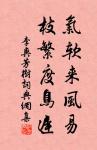 氣軟來風易
枝繁度鳥遲
李興芳樹詞典網集